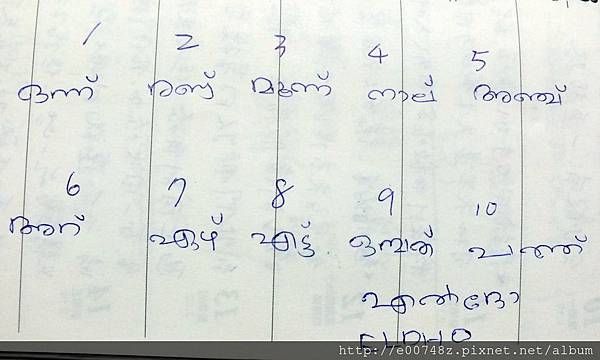 1 2 3 4 5
ഒന്ന് രണ്ട് മൂന്ന് നാല് അഞ്ച്
6 7 8 9 10
ആറ് ഏഴ് എട്ട് ഒമ്പത് പത്ത്
എൽദോ
ELDHO
http://e00748z.pixnet.net/album